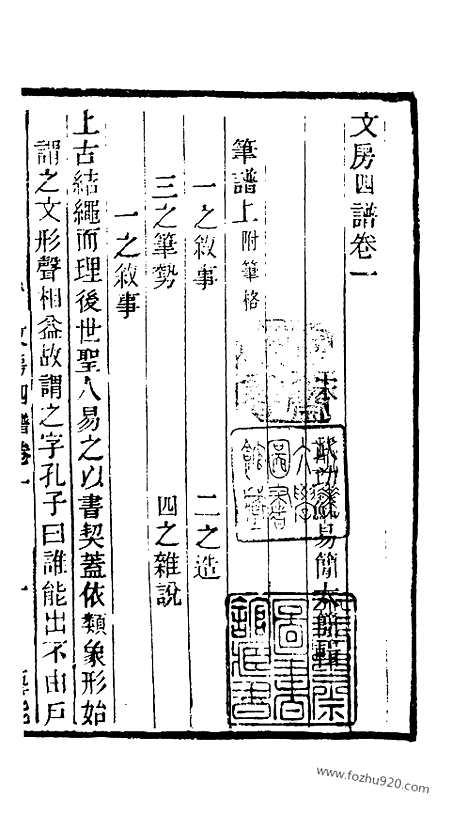 文房四譜卷一
宋 武功蘇易簡太簡輯
筆譜上附筆格
一之敘事 二之造
三之筆勢 四之雜說
一之敘事
上古結繩而理後世聖人易之以書契蓋依類象形始
謂之文形聲相益故謂之字孔子曰誰能出不由戶
文房四譜卷一 一
www.fozhu920.com